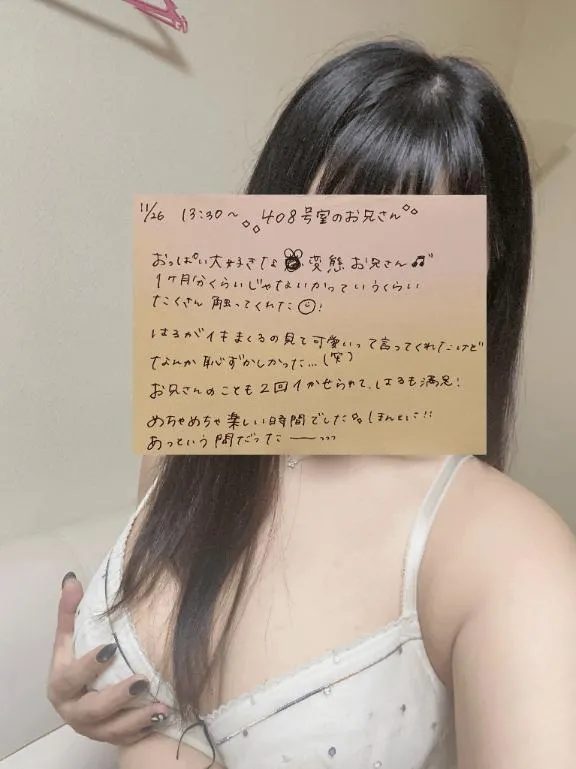 11/26 13:30~ 408号室のお兄さん
おっぱい大好きな変態お兄さん♫
1ヶ月分くらいじゃないかっていうくらい
たくさん触ってくれた☺!
はるがイキまくるの見て可愛いって言ってくれたけど
なんか恥ずかしかった…(笑)
お兄さんのことも2回イかせられて、はるも満足!
めちゃめちゃ楽しい時間でした。ほんとに!!
あっという間だったー